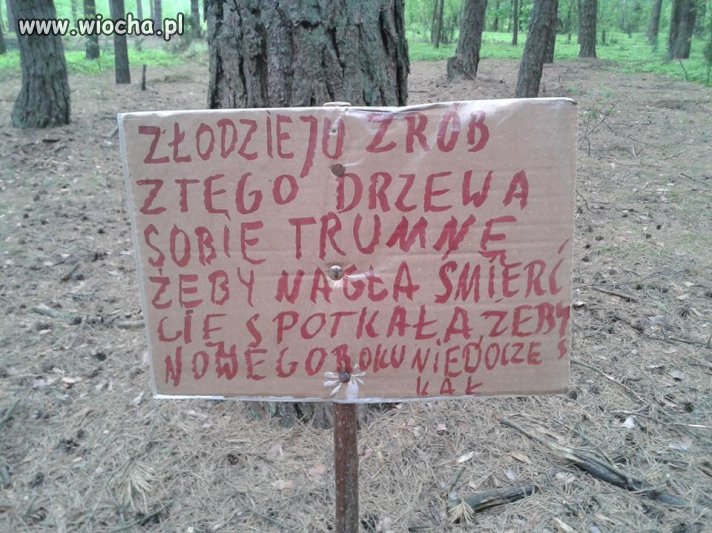 www.wiocha.pl
ZŁODZIEJU ZRÓB
ZTĘGO DRZEWA
SOBIE TRUMNĘ,
ŻEBY NAGŁA ŚMIERĆ
CIĘ SPOTKAŁA, ŻEBYŚ
NOWEGO ROKU NIEDOCZE
KAŁ